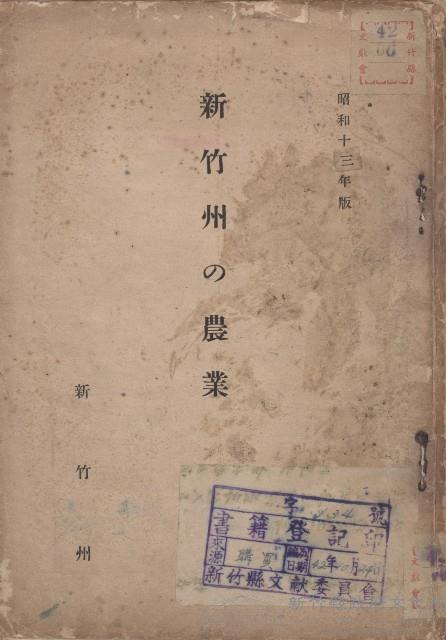 昭和十三年版
新竹州の農業
新竹州
新竹縣
文獻會
42
字 號
書籍登記
來源 購買 年 月
新竹縣文獻委員會